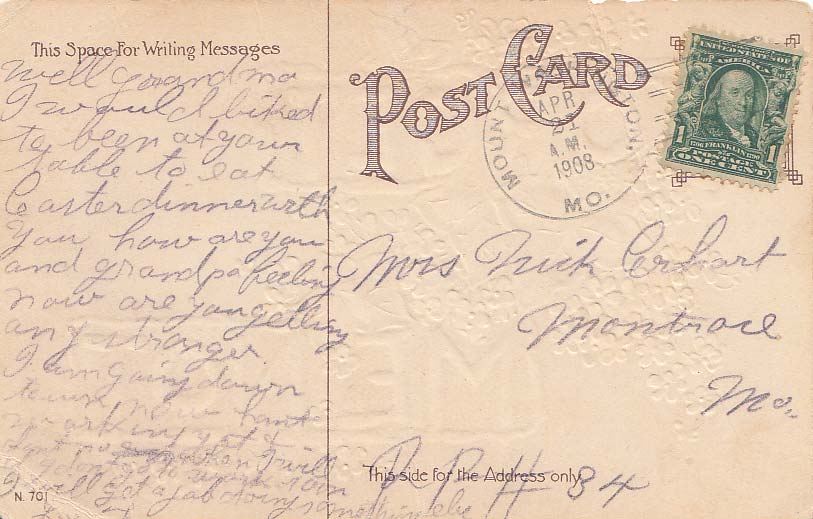 This Space For Writing Messages
POST CARD
MOUNT
APR
21
A.M.
1908
MO.
UNITED STATES OF
AMERICA
1 1706 FRANKLIN 1790 1
POSTAGE
ONE CENT
Well grandma
I would liked
to been at your
table to eat
Easter dinner with
you how are you
and grandpa feeling
now are you getting
any stronger
I am going down
town now hant
working yet &
dont no when I will
I will get a job doing something else
Mrs Frick Erhart
Montrose
Mo.
R R # 84
This side for the Address only
N. 701